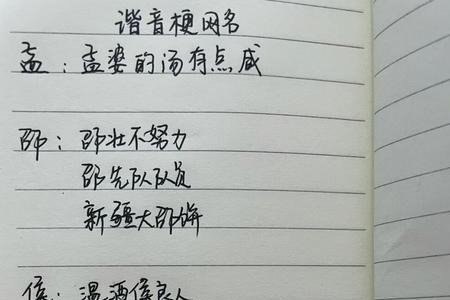 谐音梗网名
孟：孟婆的汤有点咸
邵：邵壮不努力
邵先队队员
新疆大邵饼
侯：温酒侯良人